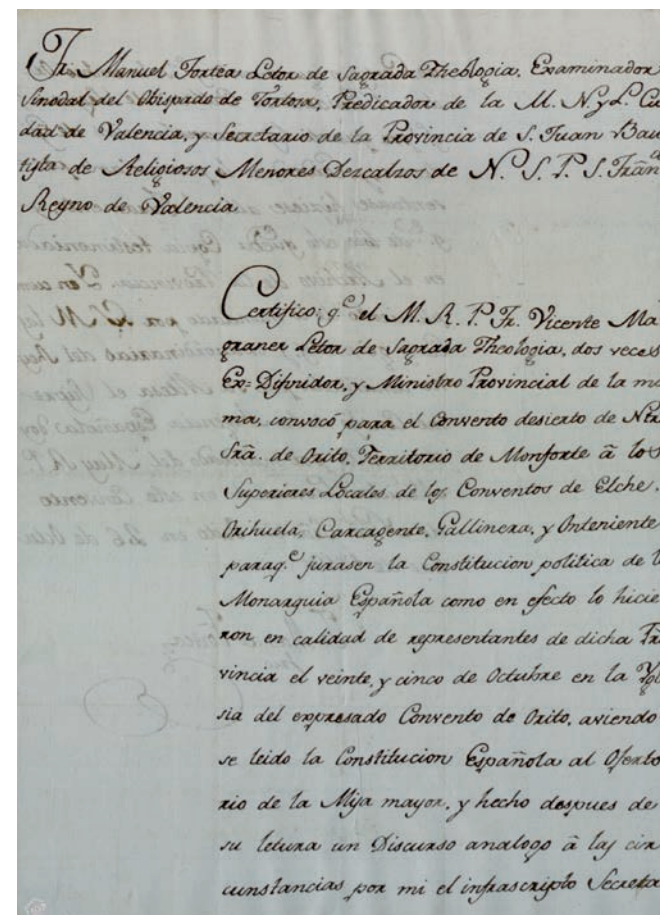 Fr. Manuel Fortéa Letor de Sagrada Theologia, Examinador
Sinodal del Obispado de Tortosa, Predicador de la M. N. y L. Ciu
dad de Valencia, y Secretario de la Provincia de S. Juan Bau
tista de Religiosos Menores Descalzos de N. S. P. S. Fran.co
Reyno de Valencia
Certifico: q.e el M. R. P. Fr. Vicente Ma
graner Letor de Sagrada Theologia, dos veces
Ex=Difinidor, y Ministro Provincial de la mis
ma, convocó para el Convento desierto de Ntr
Sra. de Orito, Territorio de Monforte ã los
Superiores Locales de los Conventos de Elche,
Orihuela, Carcagente, Gallinera, y Onteniente
paraq.e jurasen la Constitucion politica de l
Monarquia Española como en efecto lo hicie
ron, en calidad de representantes de dicha Pr
vincia el veinte, y cinco de Octubre en la Ygl
sia del expresado Convento de Orito, aviendo
se leido la Constitucion Española al Oferto
rio de la Misa mayor, y hecho despues de
su letura un Discurso analogo ã las cir
cunstancias por mi el infrascripto Secreta